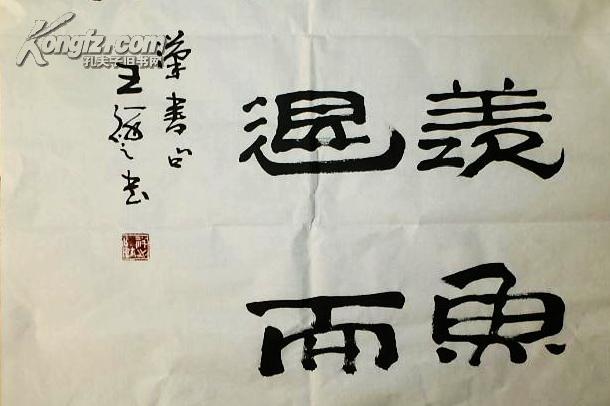 羡魚
退而
漢書句
王之书
Kongfz.com
孔夫子旧书网